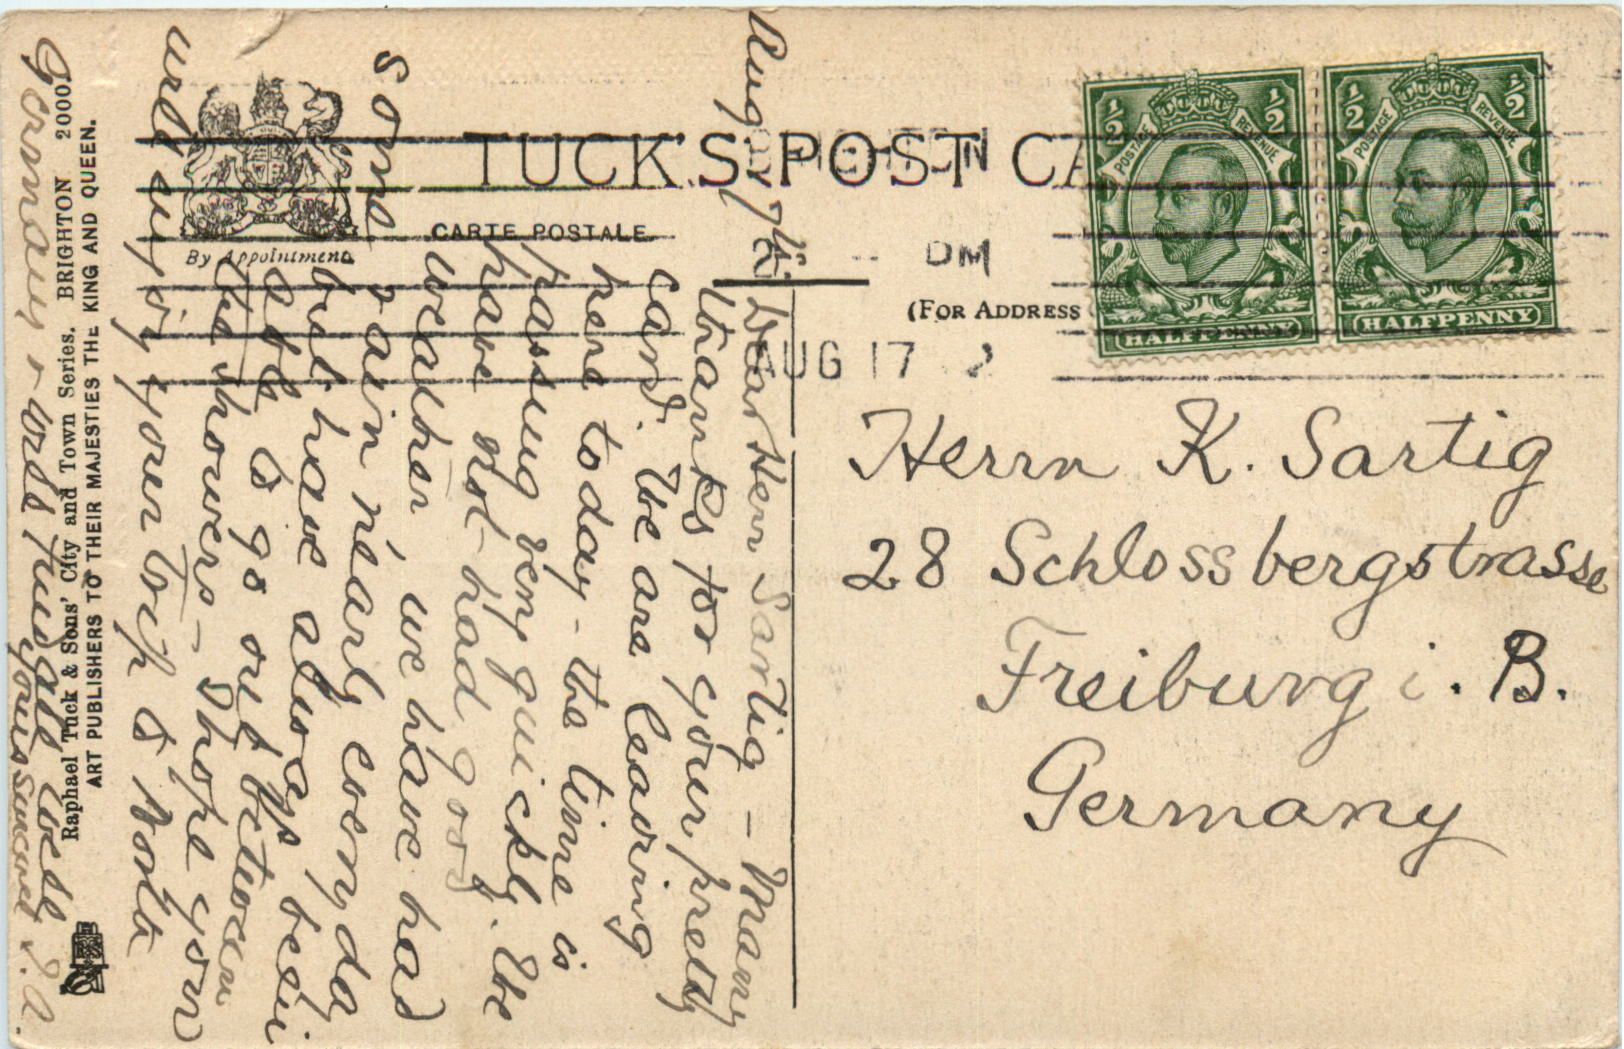 TUCK'S POST CA
CARTE POSTALE
By Appointment
(FOR ADDRESS
AUG 17
PM
½ ½
POSTAGE REVENUE
HALFPENNY
½ ½
POSTAGE REVENUE
HALFPENNY
Herrn K. Sartig
28 Schlossbergstrasse
Freiburg i. B.
Germany
Aug 17th
Dear Herr Sartig – Many
thanks for your pretty
card. We are leaving
here today – the time is
passing very quickly. We
have not had good
weather we have had
some rain nearly every day
but have always been
able to go out between
the showers – I hope you
will enjoy your trip to North
Germany + with kindest wishes
Yours sincerely
Raphael Tuck & Sons' City and Town Series. BRIGHTON 2000.
ART PUBLISHERS TO THEIR MAJESTIES THE KING AND QUEEN.